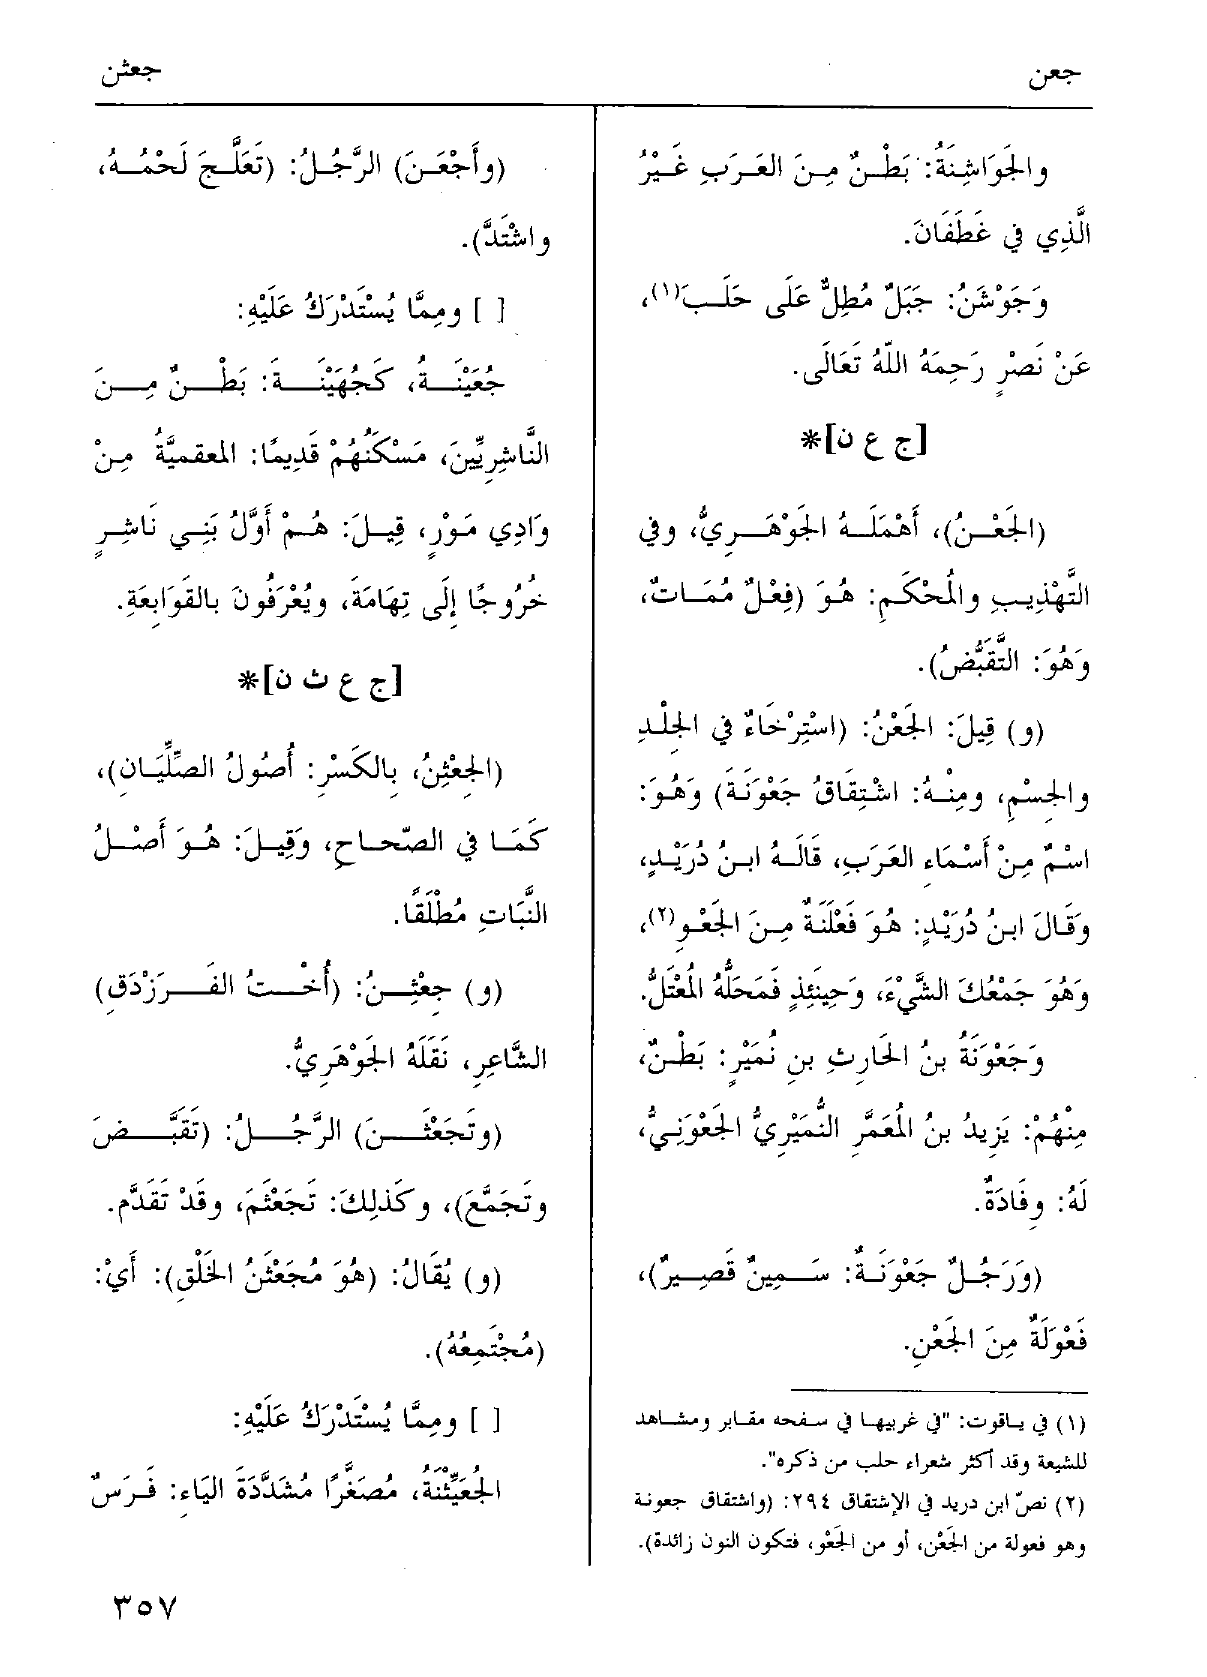 جعن
جعثن
والجَوَاشِنَةُ: بَطْنٌ مِنَ العَرَبِ غَيْرُ
الَّذِي فِي غَطَفَانَ.
وَجَوْشَنُ: جَبَلٌ مُطِلٌّ عَلَى حَلَبَ(١)،
عَنْ نَصْرٍ رَحِمَهُ اللَّهُ تَعَالَى.
[ج ع ن]*
(الجَعْنُ)، أَهْمَلَهُ الجَوْهَرِيُّ، وفي
التَّهْذِيبِ والمُحْكَمِ: هُوَ (فِعْلٌ مُمَاتٌ،
وَهُوَ: التَّقَبُّضُ).
(و) قِيلَ: الجَعْنُ: (اسْتِرْخَاءٌ فِي الجِلْدِ
والجِسْمِ، ومِنْهُ: اشْتِقَاقُ جَعْوَنَةَ) وَهُوَ:
اسْمٌ مِنْ أَسْمَاءِ العَرَبِ، قَالَهُ ابنُ دُرَيْدٍ،
وَقَالَ ابنُ دُرَيْدٍ: هُوَ فَعْلَنَةٌ مِنَ الجَعْوِ(٢)،
وَهُوَ جَمْعُكَ الشَّيْءَ، وَحِينَئِذٍ فَمَحَلُّهُ المُعْتَلُّ.
وَجَعْوَنَةُ بنُ الحَارِثِ بنِ نُمَيْرٍ: بَطْنٌ،
مِنْهُمْ: يَزِيدُ بنُ المُعَمَّرِ النُّمَيْرِيُّ الجَعْوَنِيُّ،
لَهُ: وِفَادَةٌ.
(وَرَجُلٌ جَعْوَنَةٌ: سَمِينٌ قَصِيرٌ)،
فَعْوَلَةٌ مِنَ الجَعْنِ.
(١) في ياقوت: "في غربيها في سفحه مقابر ومشاهد
للشيعة وقد أكثر شعراء حلب من ذكره".
(٢) نصّ ابن دريد في الإشتقاق ٢٩٤: (واشتقاق جعونة
وهو فعولة من الجَعْن، أو من الجَعْو، فتكون النون زائدة).
(وأَجْعَنَ) الرَّجُلُ: (تَعَلَّجَ لَحْمُهُ،
واشْتَدَّ).
[ ] ومِمَّا يُسْتَدْرَكُ عَلَيْهِ:
جُعَيْنَةُ، كَجُهَيْنَةَ: بَطْنٌ مِنَ
النَّاشِرِيِّينَ، مَسْكَنُهُمْ قَدِيمًا: المعقميَّةُ مِنْ
وَادِي مَوْرٍ، قِيلَ: هُمْ أَوَّلُ بَنِي نَاشِرٍ
خُرُوجًا إِلَى تِهَامَةَ، ويُعْرَفُونَ بالقَوَابِعَةِ.
[ج ع ث ن]*
(الجِعْثِنُ، بِالكَسْرِ: أُصُولُ الصِّلِّيَانِ)،
كَمَا فِي الصّحاحِ، وَقِيلَ: هُوَ أَصْلُ
النَّبَاتِ مُطْلَقًا.
(و) جِعْثِنُ: (أُخْتُ الفَرَزْدَقِ)
الشَّاعِرِ، نَقَلَهُ الجَوْهَرِيُّ.
(وتَجَعْثَنَ) الرَّجُلُ: (تَقَبَّضَ
وتَجَمَّعَ)، وكَذلِكَ: تَجَعْثَمَ، وقَدْ تَقَدَّم.
(و) يُقَالُ: (هُوَ مُجَعْثَنُ الخَلْقِ): أَيْ:
(مُجْتَمِعُهُ).
[ ] ومِمَّا يُسْتَدْرَكُ عَلَيْهِ:
الجُعَيْثِنَةُ، مُصَغَّرًا مُشَدَّدَةَ اليَاءِ: فَرَسٌ
٣٥٧